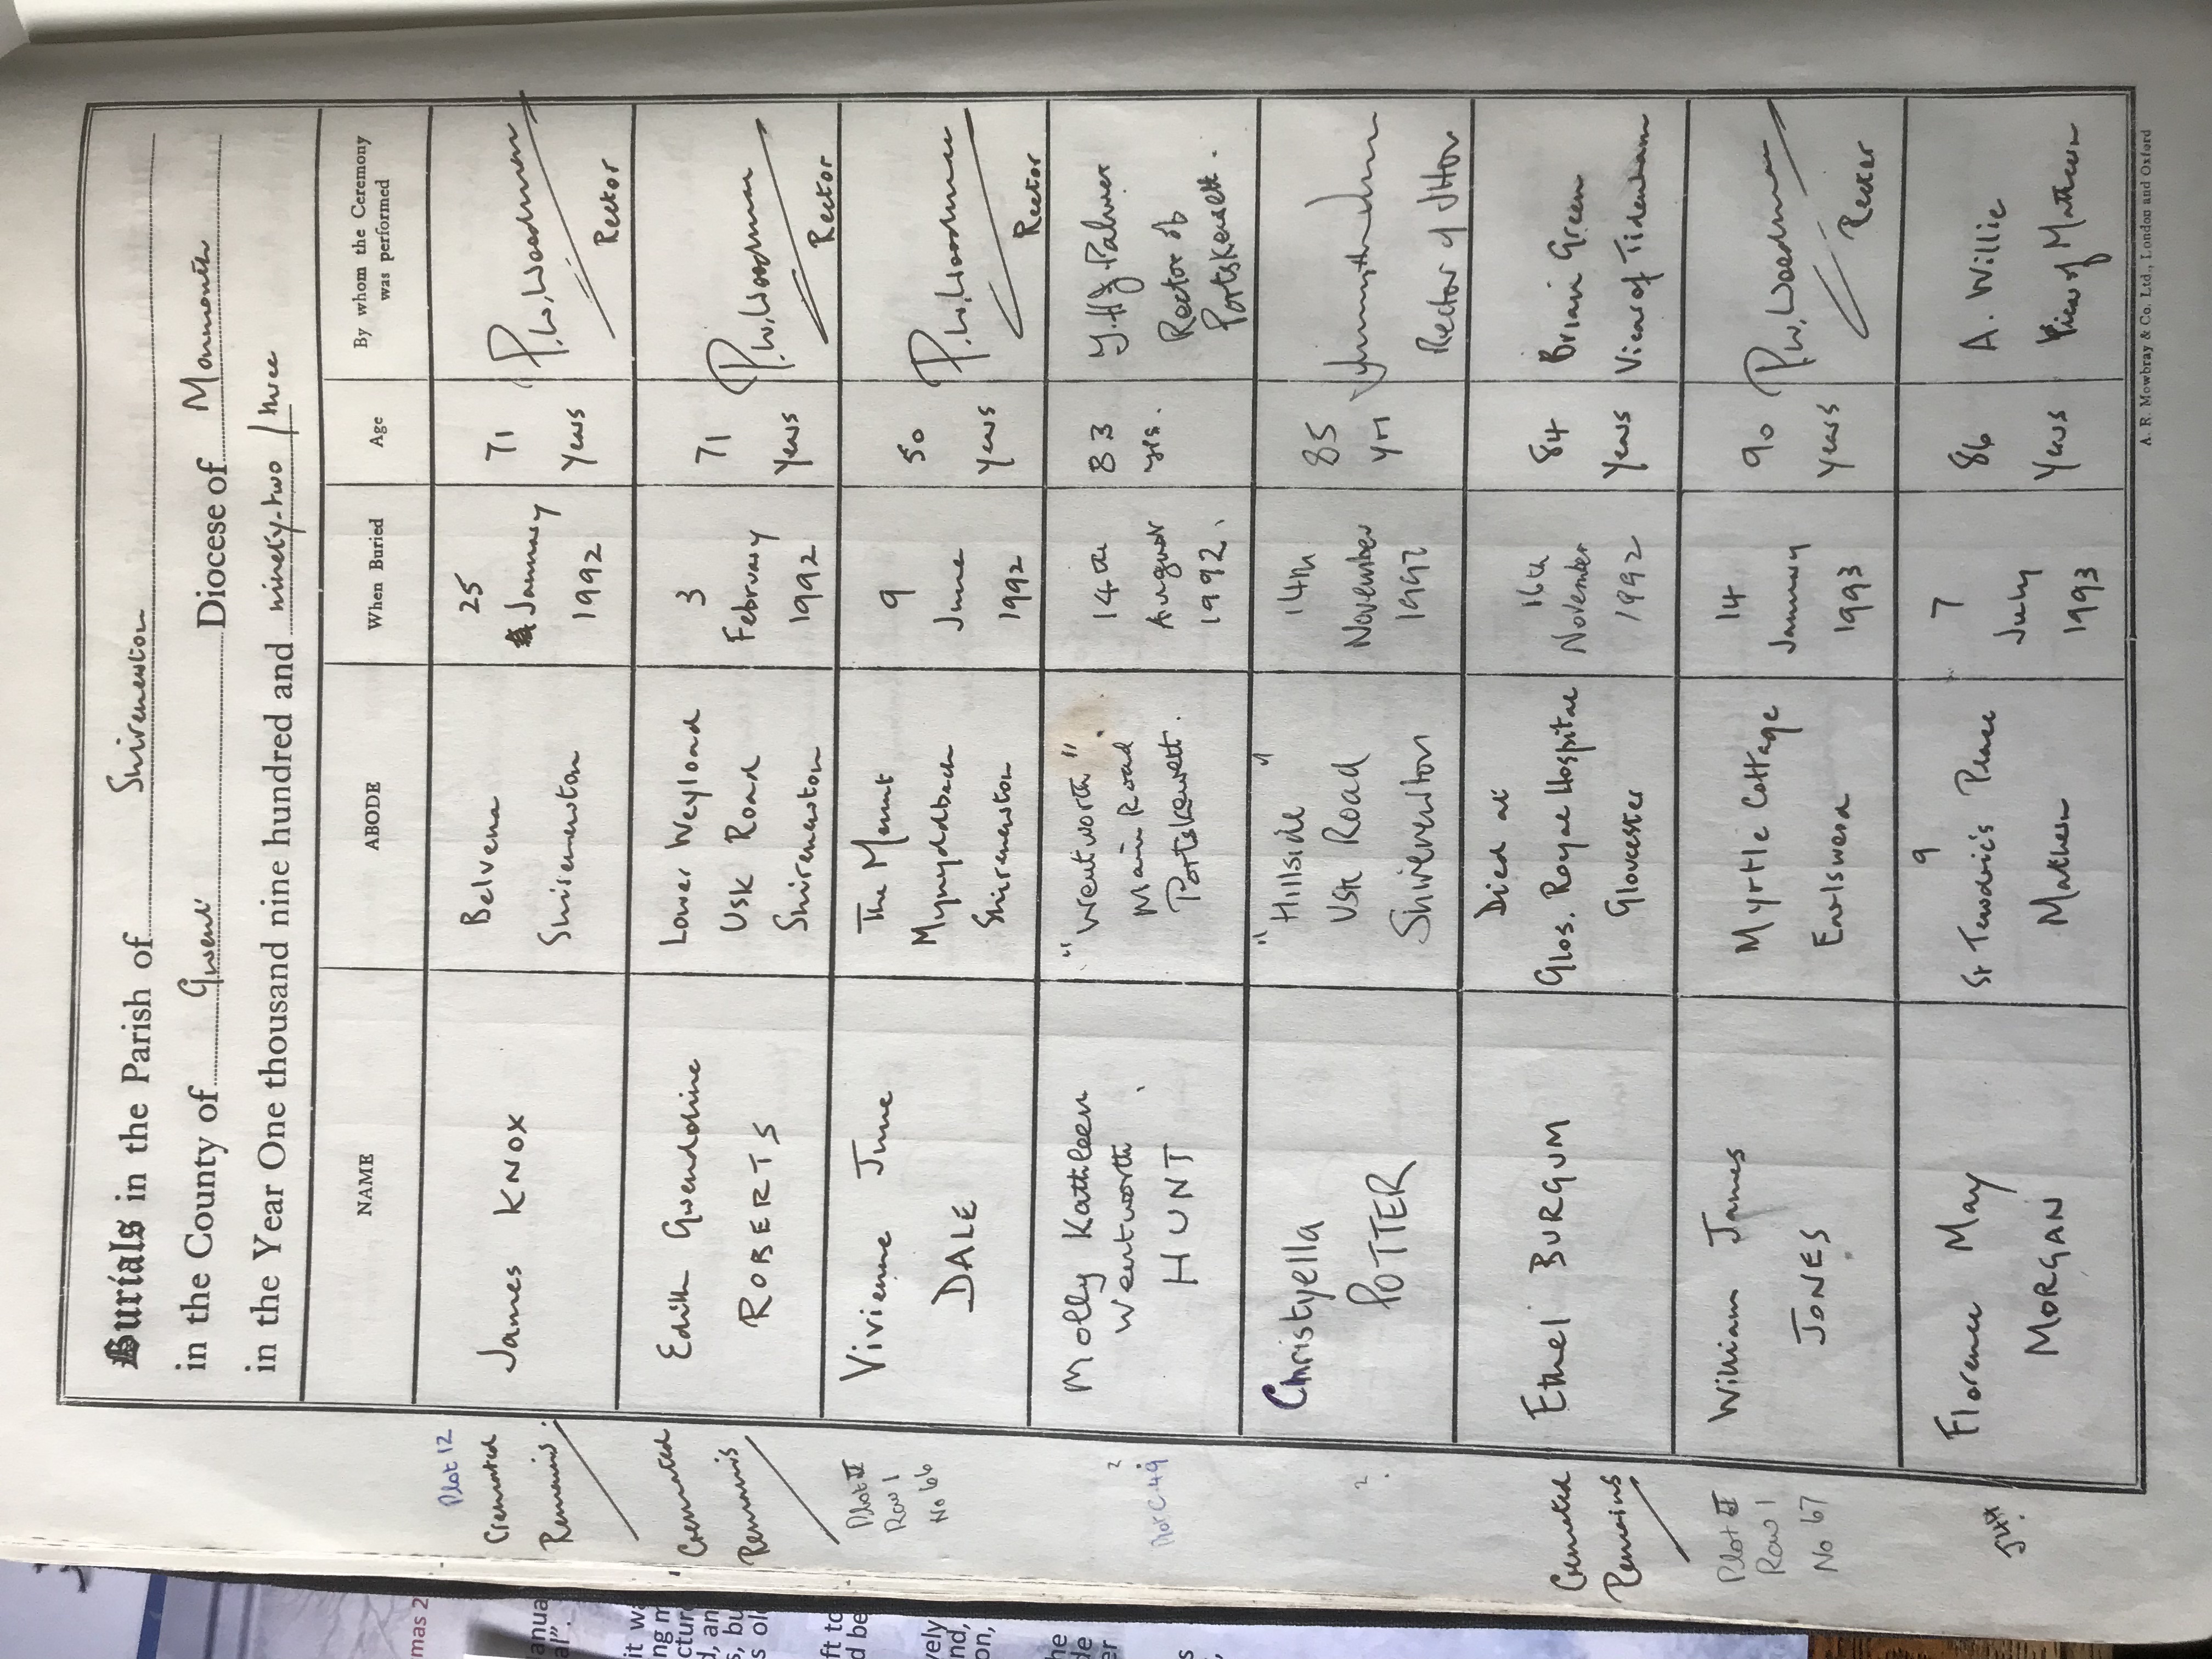 Burials in the Parish of Shirenewton
in the County of Gwent Diocese of Monmouth
in the Year One thousand nine hundred and ninety-two / three
NAME
ABODE
When Buried
Age
By whom the Ceremony
was performed
Plot 12
Cremated
Remains
James KNOX
Belvena
Shirenewton
25
January
1992
71
Years
P.W. Woodman
Rector
Cremated
Remains
Edith Gwendoline
ROBERTS
Lower Weyload
Usk Road
Shirenewton
3
February
1992
71
Years
P.W. Woodman
Rector
Plot II
Row 1
No 66
Vivienne June
DALE
The Mount
Mynyddbach
Shirenewton
9
June
1992
50
Years
P.W. Woodman
Rector
?
Plot C 49
Molly Kathleen
Wentworth
HUNT
"Wentworth".
Main Road
Portskewett.
14th
August
1992.
83
yrs.
Palmer
Rector of
Portskewett.
?
Christyella
POTTER
"Hillside"
Usk Road
Shirenewton
14th
November
1992
85
yrs
Rector of
Cremated
Remains
Ethel BURGUM
Died at
Glos. Royal Hospital
Gloucester
16th
November
1992
84
Years
Brian Green
Vicar of Tidenham
Plot II
Row 1
No 67
William James
JONES
Myrtle Cottage
Earlswood
14
January
1993
90
Years
P.W. Woodman
Rector
Florence May
MORGAN
9
St Tewdric's Place
Mathern
7
July
1993
86
Years
A. Willie
Vicar of Mathern
A. R. Mowbray & Co. Ltd., London and Oxford
mas 2